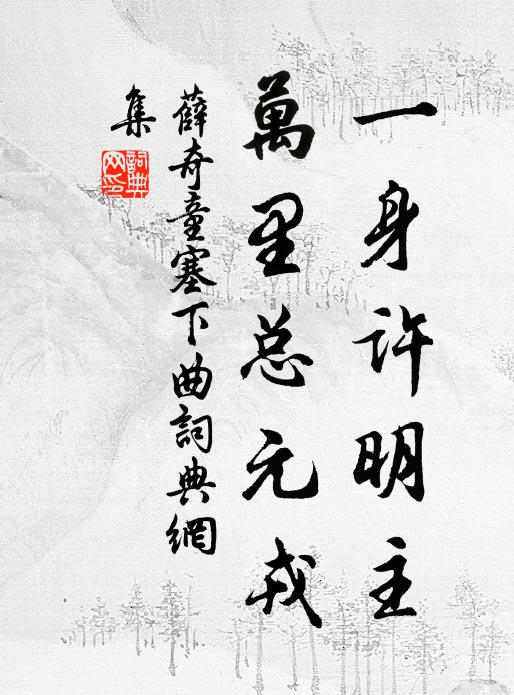 一身许明主
萬里总元戎
薛奇童塞下曲詞典網
集
詞典
网印